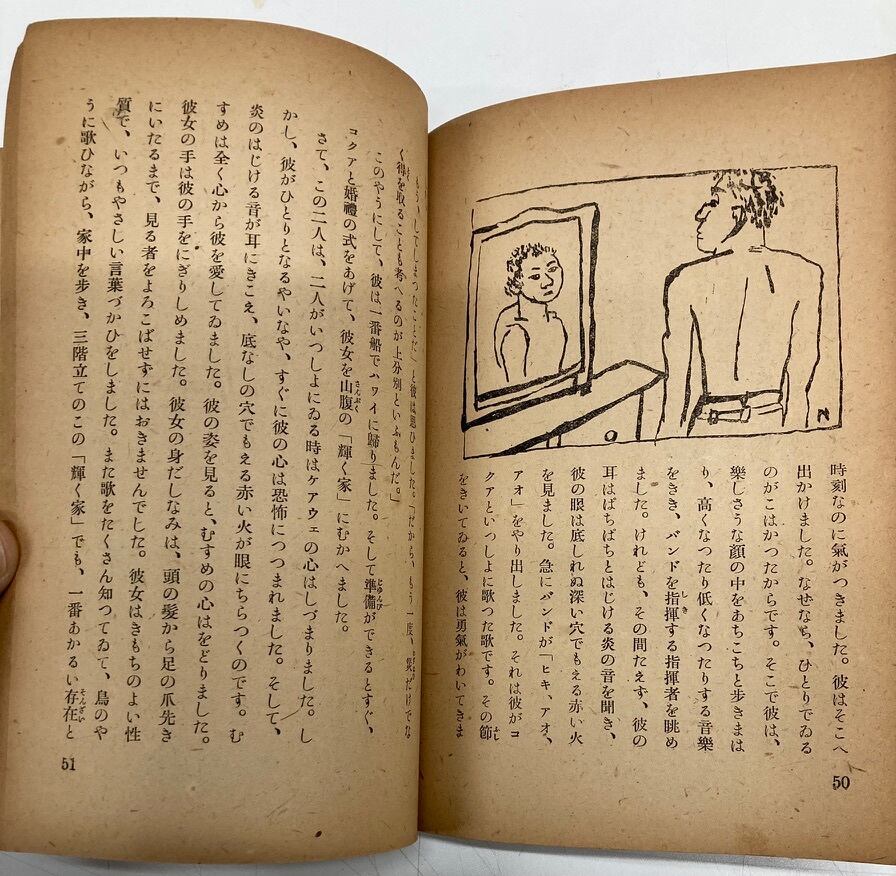 時刻なのに氣がつきました。彼はそこへ
出かけました。なぜなら、ひとりでゐる
のがこはかつたからです。そこで彼は、
樂しさうな顏の中をあちこちと歩きまは
り、高くなつたり低くなつたりする音樂
をきき、バンドを指揮する指揮者を眺め
ました。けれども、その間たえず、彼の
耳はぱちぱちとはじける炎の音を聞き、
彼の眼は底しれぬ深い穴でもえる赤い火
を見ました。急にバンドが「ヒキ、アオ、
アオ」をやり出しました。それは彼がコ
クアといつしよに歌つた歌です。その節
をきいてゐると、彼は勇氣がわいてきま
50
もう、してしまつたことだ」と彼は思ひました。「だから、もう一度、災だけでな
く得を取ることも考へるのが上分別といふもんだ。」
このやうにして、彼は一番船でハワイに歸りました。そして準備ができるとすぐ、
コクアと婚禮の式をあげて、彼女を山腹の「輝く家」にむかへました。
さて、この二人は、二人がいつしよにゐる時はケアウェの心はしづまりました。し
かし、彼がひとりとなるやいなや、すぐに彼の心は恐怖につつまれました。そして、
炎のはじける音が耳にきこえ、底なしの穴でもえる赤い火が眼にちらつくのです。む
すめは全く心から彼を愛してゐました。彼の姿を見ると、むすめの心はをどりました。
彼女の手は彼の手をにぎりしめました。彼女の身だしなみは、頭の髮から足の爪先き
にいたるまで、見る者をよろこばせずにはおきませんでした。彼女はきもちのよい性
質で、いつもやさしい言葉づかひをしました。また歌をたくさん知つてゐて、鳥のや
うに歌ひながら、家中を歩き、三階立てのこの「輝く家」でも、一番あかるい存在と
51